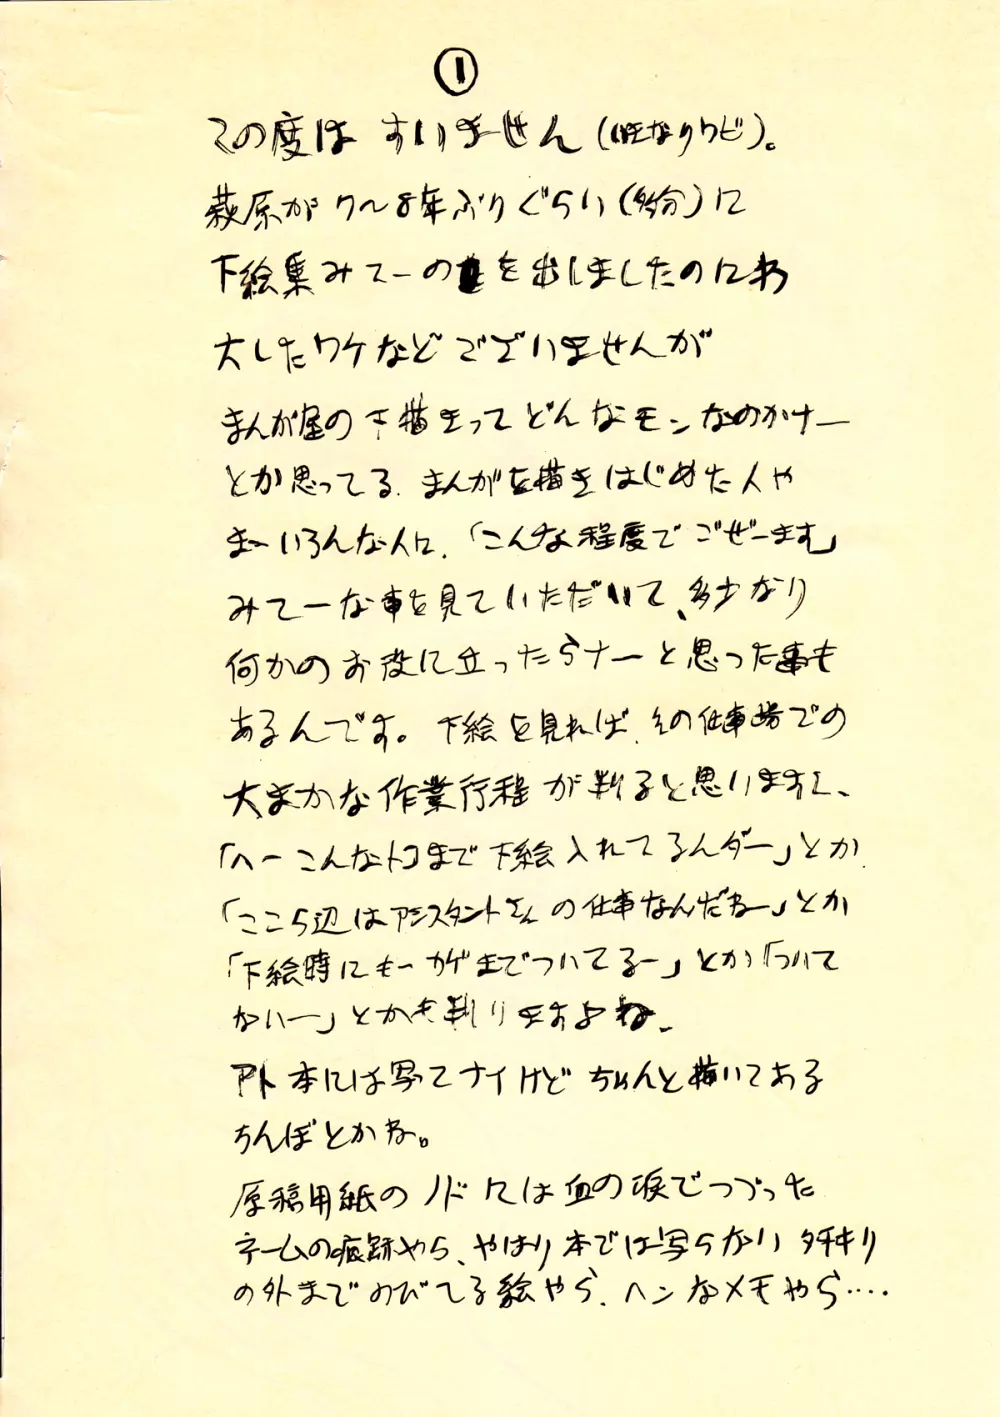 ①
この度は すいません(いきなりワビ)。
萩原が 7〜8年ぶりぐらい(多分)に
下絵集みてーのを出しましたのにわ
大したワケなどございませんが
まんが屋の下描きってどんなモンなのかナー
とか思ってる、まんがを描きはじめた人や
まーいろんな人に、「こんな程度でごぜーます」
みてーな事を見ていただいて、多少なり
何かのお役に立ったらナーと思った事も
あるんです。下絵を見れば、その仕事場での
大まかな作業行程が判ると思いますし、
「ヘーこんなトコまで下絵入れてるんダー」とか
「ここら辺はアシスタントさんの仕事なんだねー」とか
「下絵時にもーカゲまでついてるー」とか「ついて
ないー」とかも判りますよね、
アト本には写ってナイけどちゃんと描いてある
ちんぽとかね。
原稿用紙のノドには血の涙でつづった
ネームの痕跡やら、やはり本では写らない タチキリ
の外までのびてる絵やら、ヘンなメモやら‥‥